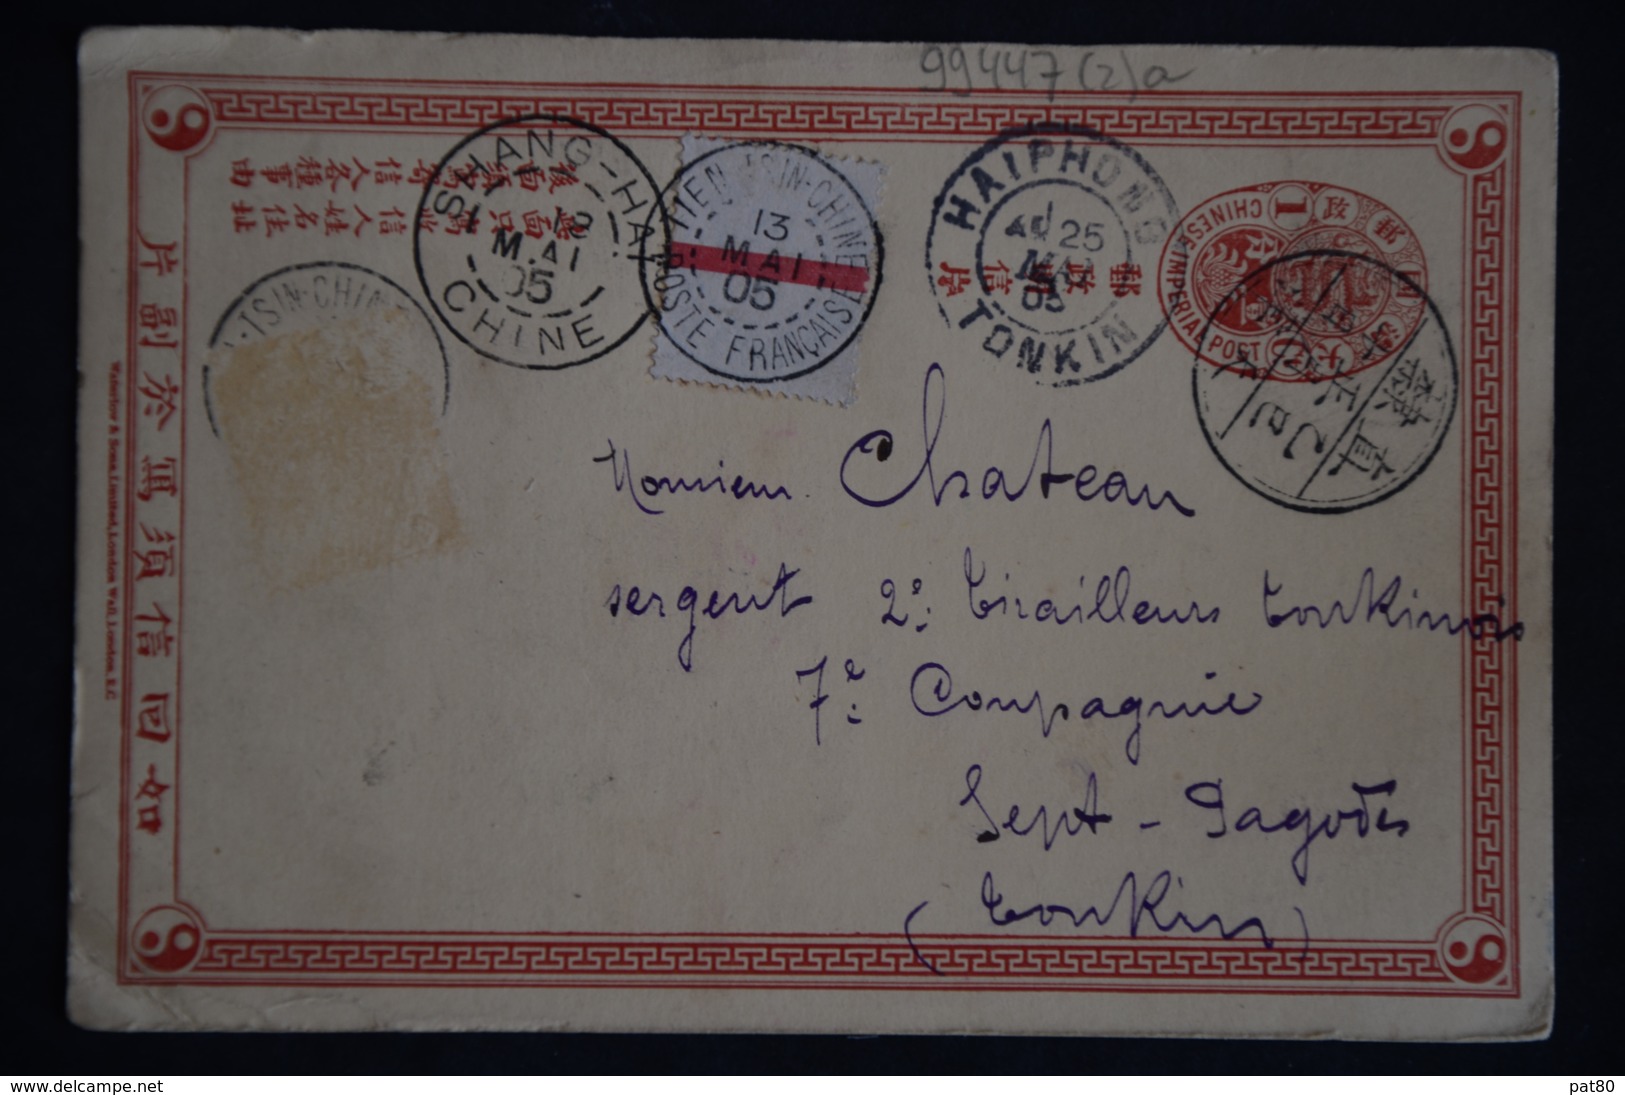 99447(2)a
SHANG-HAI
12
MAI
05
CHINE
TIEN-TSIN-CHINE
13
MAI
05
POSTE FRANÇAISE
HAIPHONG
25
MAI
05
TONKIN
CHINESE IMPERIAL POST
1
-TSIN-CHIN
郵政信局
後面須寫寄信人各種事由
此面只寫信人姓名住址
片副於寫須信回如
Waterlow & Sons Limited, London Wall, London, E.C.
Monsieur Chateau
sergent 2e: Tirailleurs Tonkinois
7e: Compagnie
Sept-Pagodes
(Tonkin)
delcampe.net
pat80